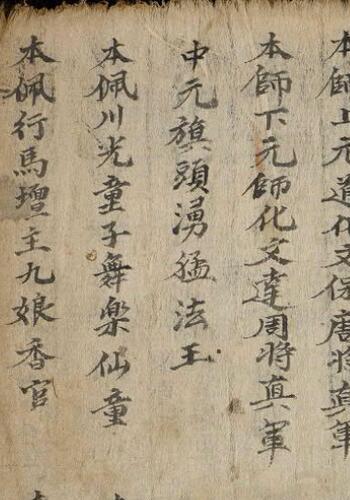 本師上元道化文保唐將真軍
本師下元師化文達周將真軍
中元旗頭湧猛法王
本佩川光童子舞樂仙童
本佩行馬壇主九娘香官